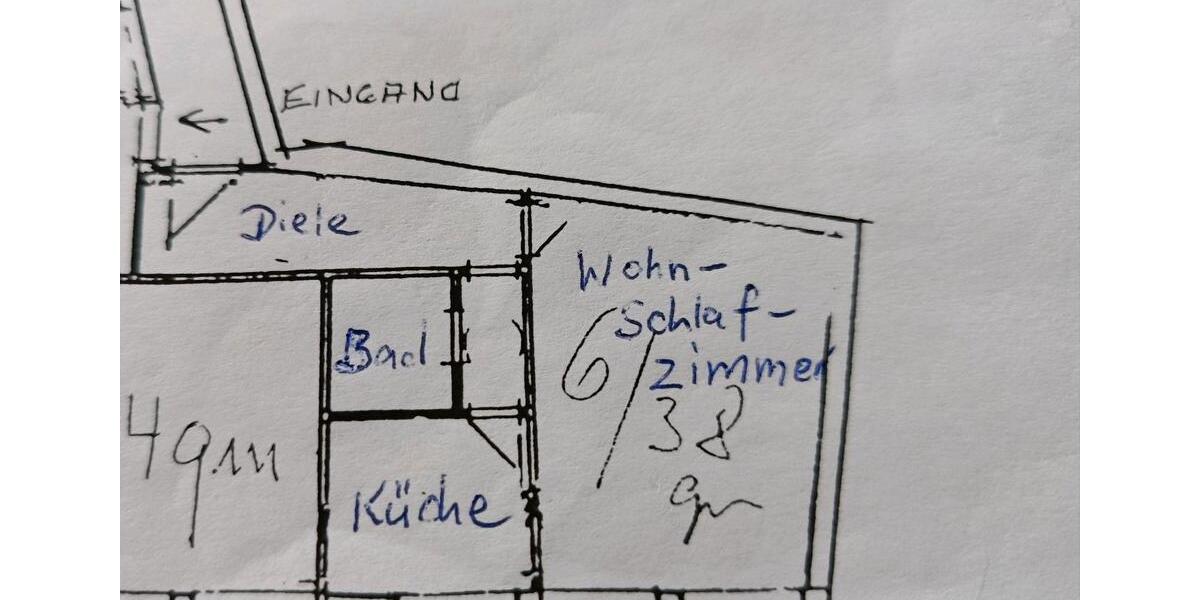 EINGANG
Diele
Wohn-
Schlaf-
zimmer
Bad
6/38
qm
4 qm
Küche